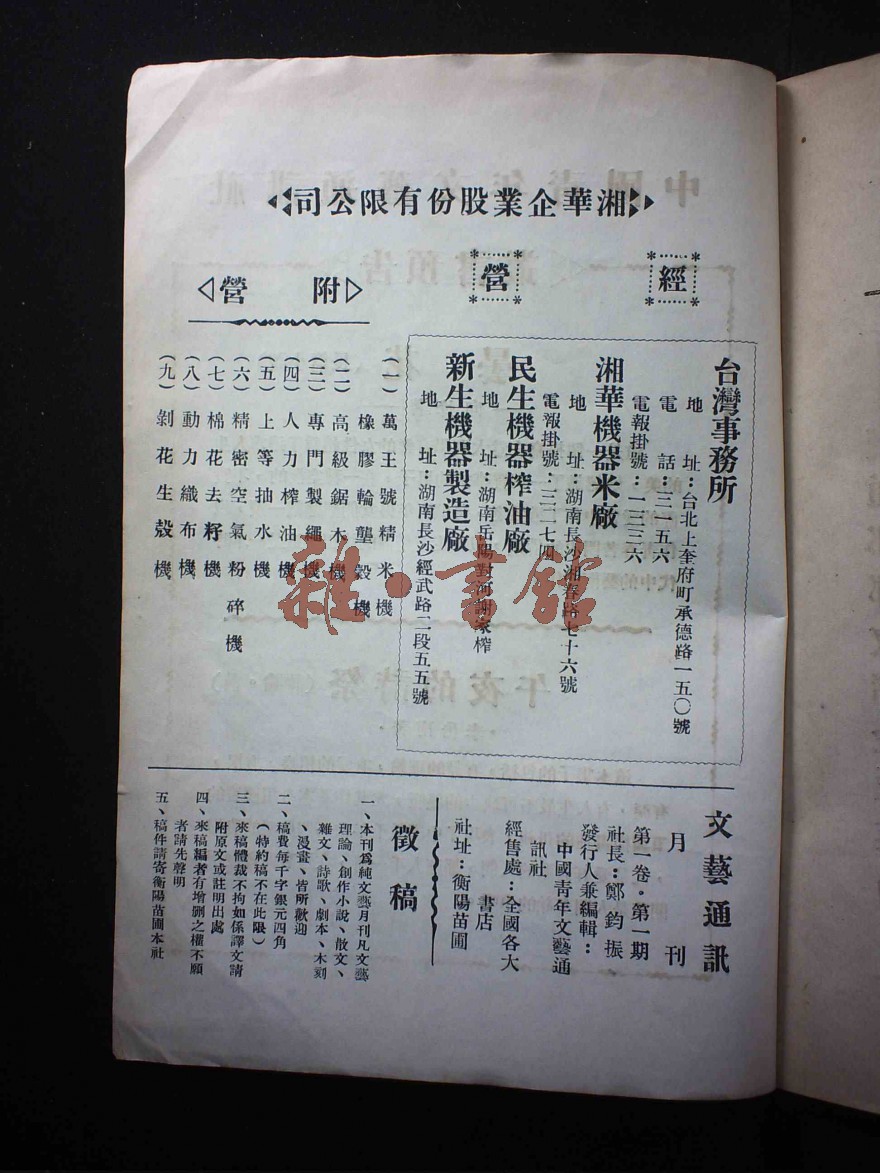 湘華企業股份有限公司
經營
台灣事務所
地址：台北上奎府町承德路一五〇號
電話：三一五六
電報掛號：一三三六
湘華機器米廠
地址：湖南長沙湘春路七十六號
電報掛號：三二七四
民生機器榨油廠
地址：湖南岳陽對河謝家榨
新生機器製造廠
地址：湖南長沙經武路二段五五號
附營
（一）萬王號精米機
橡膠輪礱穀機
（二）高級鋸木機
（三）專門製繩機
（四）人力榨油機
（五）上等抽水機
（六）精密空氣粉碎機
（七）棉花去籽機
（八）動力織布機
（九）剝花生殼機
文藝通訊
月刊
第一卷·第一期
社長：鄭鈞振
發行人兼編輯：
中國青年文藝通
訊社
經售處：全國各大
書店
社址：衡陽苗圃
徵稿
一、本刊爲純文藝月刊凡文藝
理論、創作小說、散文、
雜文、詩歌、劇本、木刻
、漫畫、皆所歡迎
二、稿費每千字銀元四角
（特約稿不在此限）
三、來稿體裁不拘如係譯文請
附原文或註明出處
四、來稿編者有增删之權不願
者請先聲明
五、稿件請寄衡陽苗圃本社
雜·書館